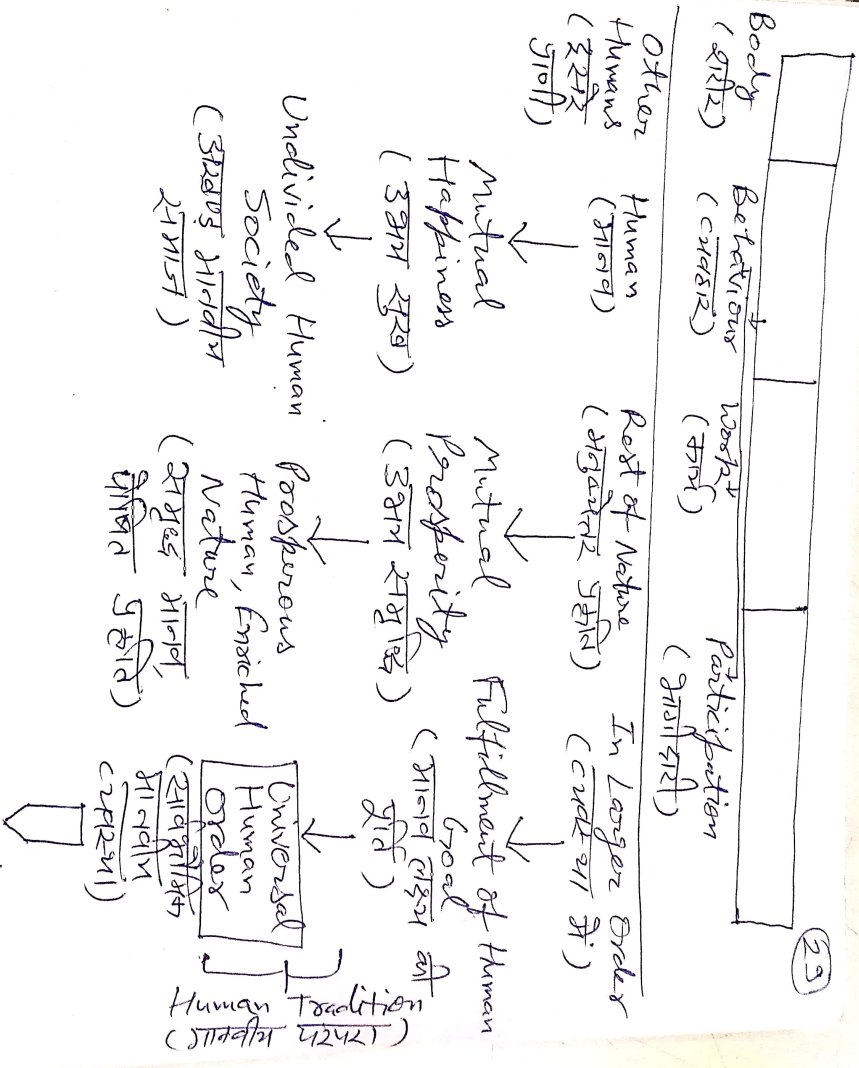 29
Body
(शरीर)
Behaviour
(व्यवहार)
Work
(कार्य)
Participation
(भागीदारी)
Other
Humans
(दूसरे
प्राणी)
Human
(मानव)
Rest of Nature
(मनुष्येतर प्रकृति)
In Larger Order
(व्यवस्था में)
Mutual
Happiness
(उभय सुख)
Mutual
Prosperity
(उभय समृद्धि)
Fulfillment of Human
Goal
(मानव लक्ष्य की
पूर्ति)
Undivided Human
Society
(अखण्ड मानवीय
समाज)
Prosperous
Human, Enriched
Nature
(समृद्ध मानव,
पोषित प्रकृति)
Universal
Human
Order
(सार्वभौमिक
मानवीय
व्यवस्था)
Human Tradition
(मानवीय परंपरा)